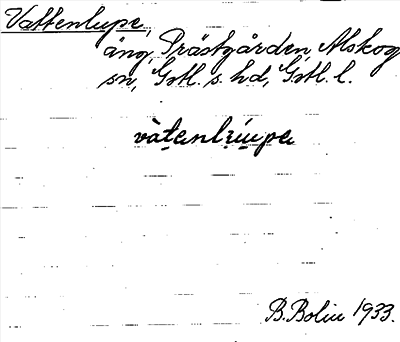 Vattenlupe,
äng, Prästgården, Alskog
sn, Gotl. s. hd, Gotl. l.
vàtenlúupe
B. Bolin 1933.